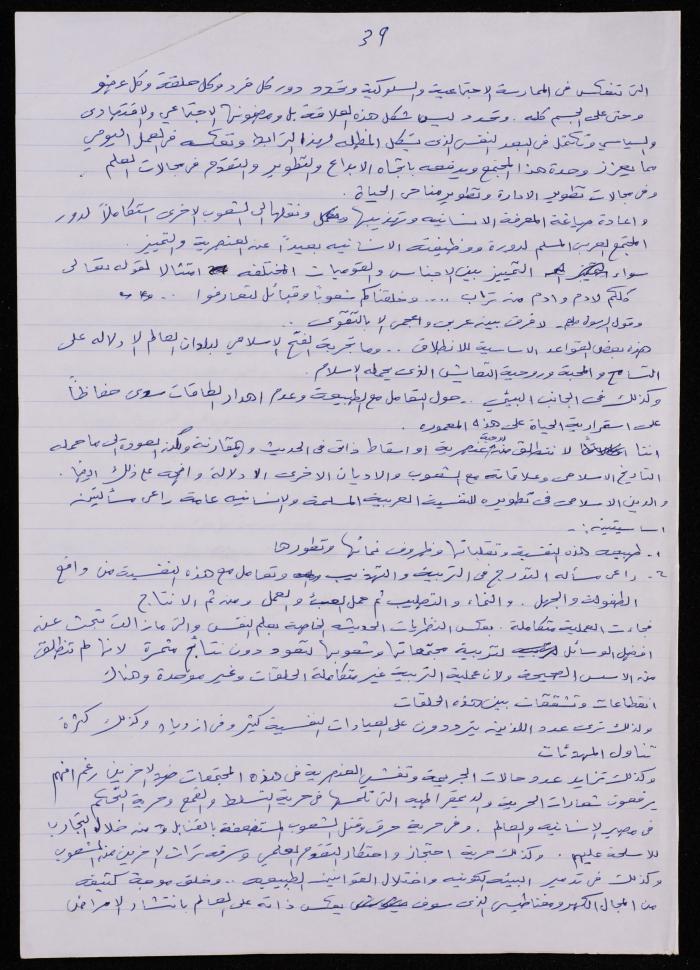 39
التي تنعكس في الممارسة الاجتماعية والسلوكية وتحدد دور كل فرد وكل حلقة وكل عضو
وحتى على الجسم كله . وتحدد ليس شكل هذه العلاقة بل ومضمونها الاجتماعي والاقتصادي
والسياسي وتأتي في البعد النفسي الذي يشكل المظلة لهذا الترابط وتعكسه في العمل اليومي
مما يعزز وحدة هذا المجتمع ويدفعه باتجاه الابداع والتطوير والتقدم في مجالات العلم
وفي مجالات تطوير الادارة وتطوير مناحي الحياة .
واعادة صياغة المعرفة الانسانيه وتهذيبها ونقلها الى الشعوب الاخرى استكمالاً لدور
المجتمع العربي المسلم لدورة ووظيفته الانسانيه بعيداً عن العنصرية والتمييز .
سواء التمييز بين الاجناس والقوميات المختلفه امتثالا لقوله تعالى
كلكم لادم وادم من تراب .... وخلقناكم شعوبا وقبائل لتعارفوا ...
وقول الرسول لا فرق بين عربي واعجمي الا بالتقوى ..
هذه بعض القواعد الاساسية للانطلاق .. وما تجربة الفتح الاسلامي لبلدان العالم الا دلاله على
التسامح والمحبة وروحية التعايش الذي يحمله الاسلام .
وكذلك في الجانب البيئي .. حول التعامل مع الطبيعة وعدم اهدار الطاقات سوى حفاظاً
على استمرارية الحياة على هذه المعموره .
اننا لا ننطلق من عنصرية او اسقاط ذاتي في الحديث والمقارنة ولكن العودة الى ما حمله
التاريخ الاسلامي وعلاقاته مع الشعوب والاديان الاخرى الا دلالة واضحه على ذلك ايضا .
والدين الاسلامي في تطويره للنفسية العربية المسلمة والانسانيه عامة راعى مسألتين
اساسيتين :-
1- طبيعة هذه النفسية وتقلباتها وظروف نمائها وتطورها
2- راعى مسألة التدرج في التربية والتهذيب وتعامل مع هذه النفسية من واقع
الطفولة والجهل . والنماء والتصليب ثم العمل ومن ثم الانتاج
فجاءت العملية متكاملة . بعكس النظريات الحديثه الخاصة بعلم النفس والتي مازالت تبحث عن
افضل الوسائل لتربية مجتمعاتها وشعوبها لتعود دون نتائج مثمرة لانها لم تنطلق
من الاسس الصحيحة ولان عملية التربية غير متكاملة الحلقات وغير موحدة وهناك
انقطاعات وتشققات بين هذه الحلقات
ولذلك نرى عدد اللذين يترددون على العيادات النفسية كثير وفي ازدياد وكذلك كثرة
تناول المهدئات
وكذلك تزايد عدد حالات الجريمة وتفشي العنصرية في هذه المجتمعات ضد الاخرين رغم انهم
يرفعون شعارات الحرية والديمقراطيه التي تلمسها في حرية التسلط والقمع وحرية التحكم
في مصير الانسانيه والعالم . وفي حرية حرق وقتل الشعوب المستضعفة بالقنابل و من خلال التجارب
للاسلحة عليهم . وكذلك حرية احتجاز واحتكار التقدم العلمي وسرقه تراث الاخرين من الشعوب
وكذلك في تدمير البيئه الكونيه واختلال القوانين الطبيعيه .. وخلق موجة كثيفه
من المجال الكهرومغناطيسي الذي سوف يعكس ذاته على العالم بانتشار الامراض